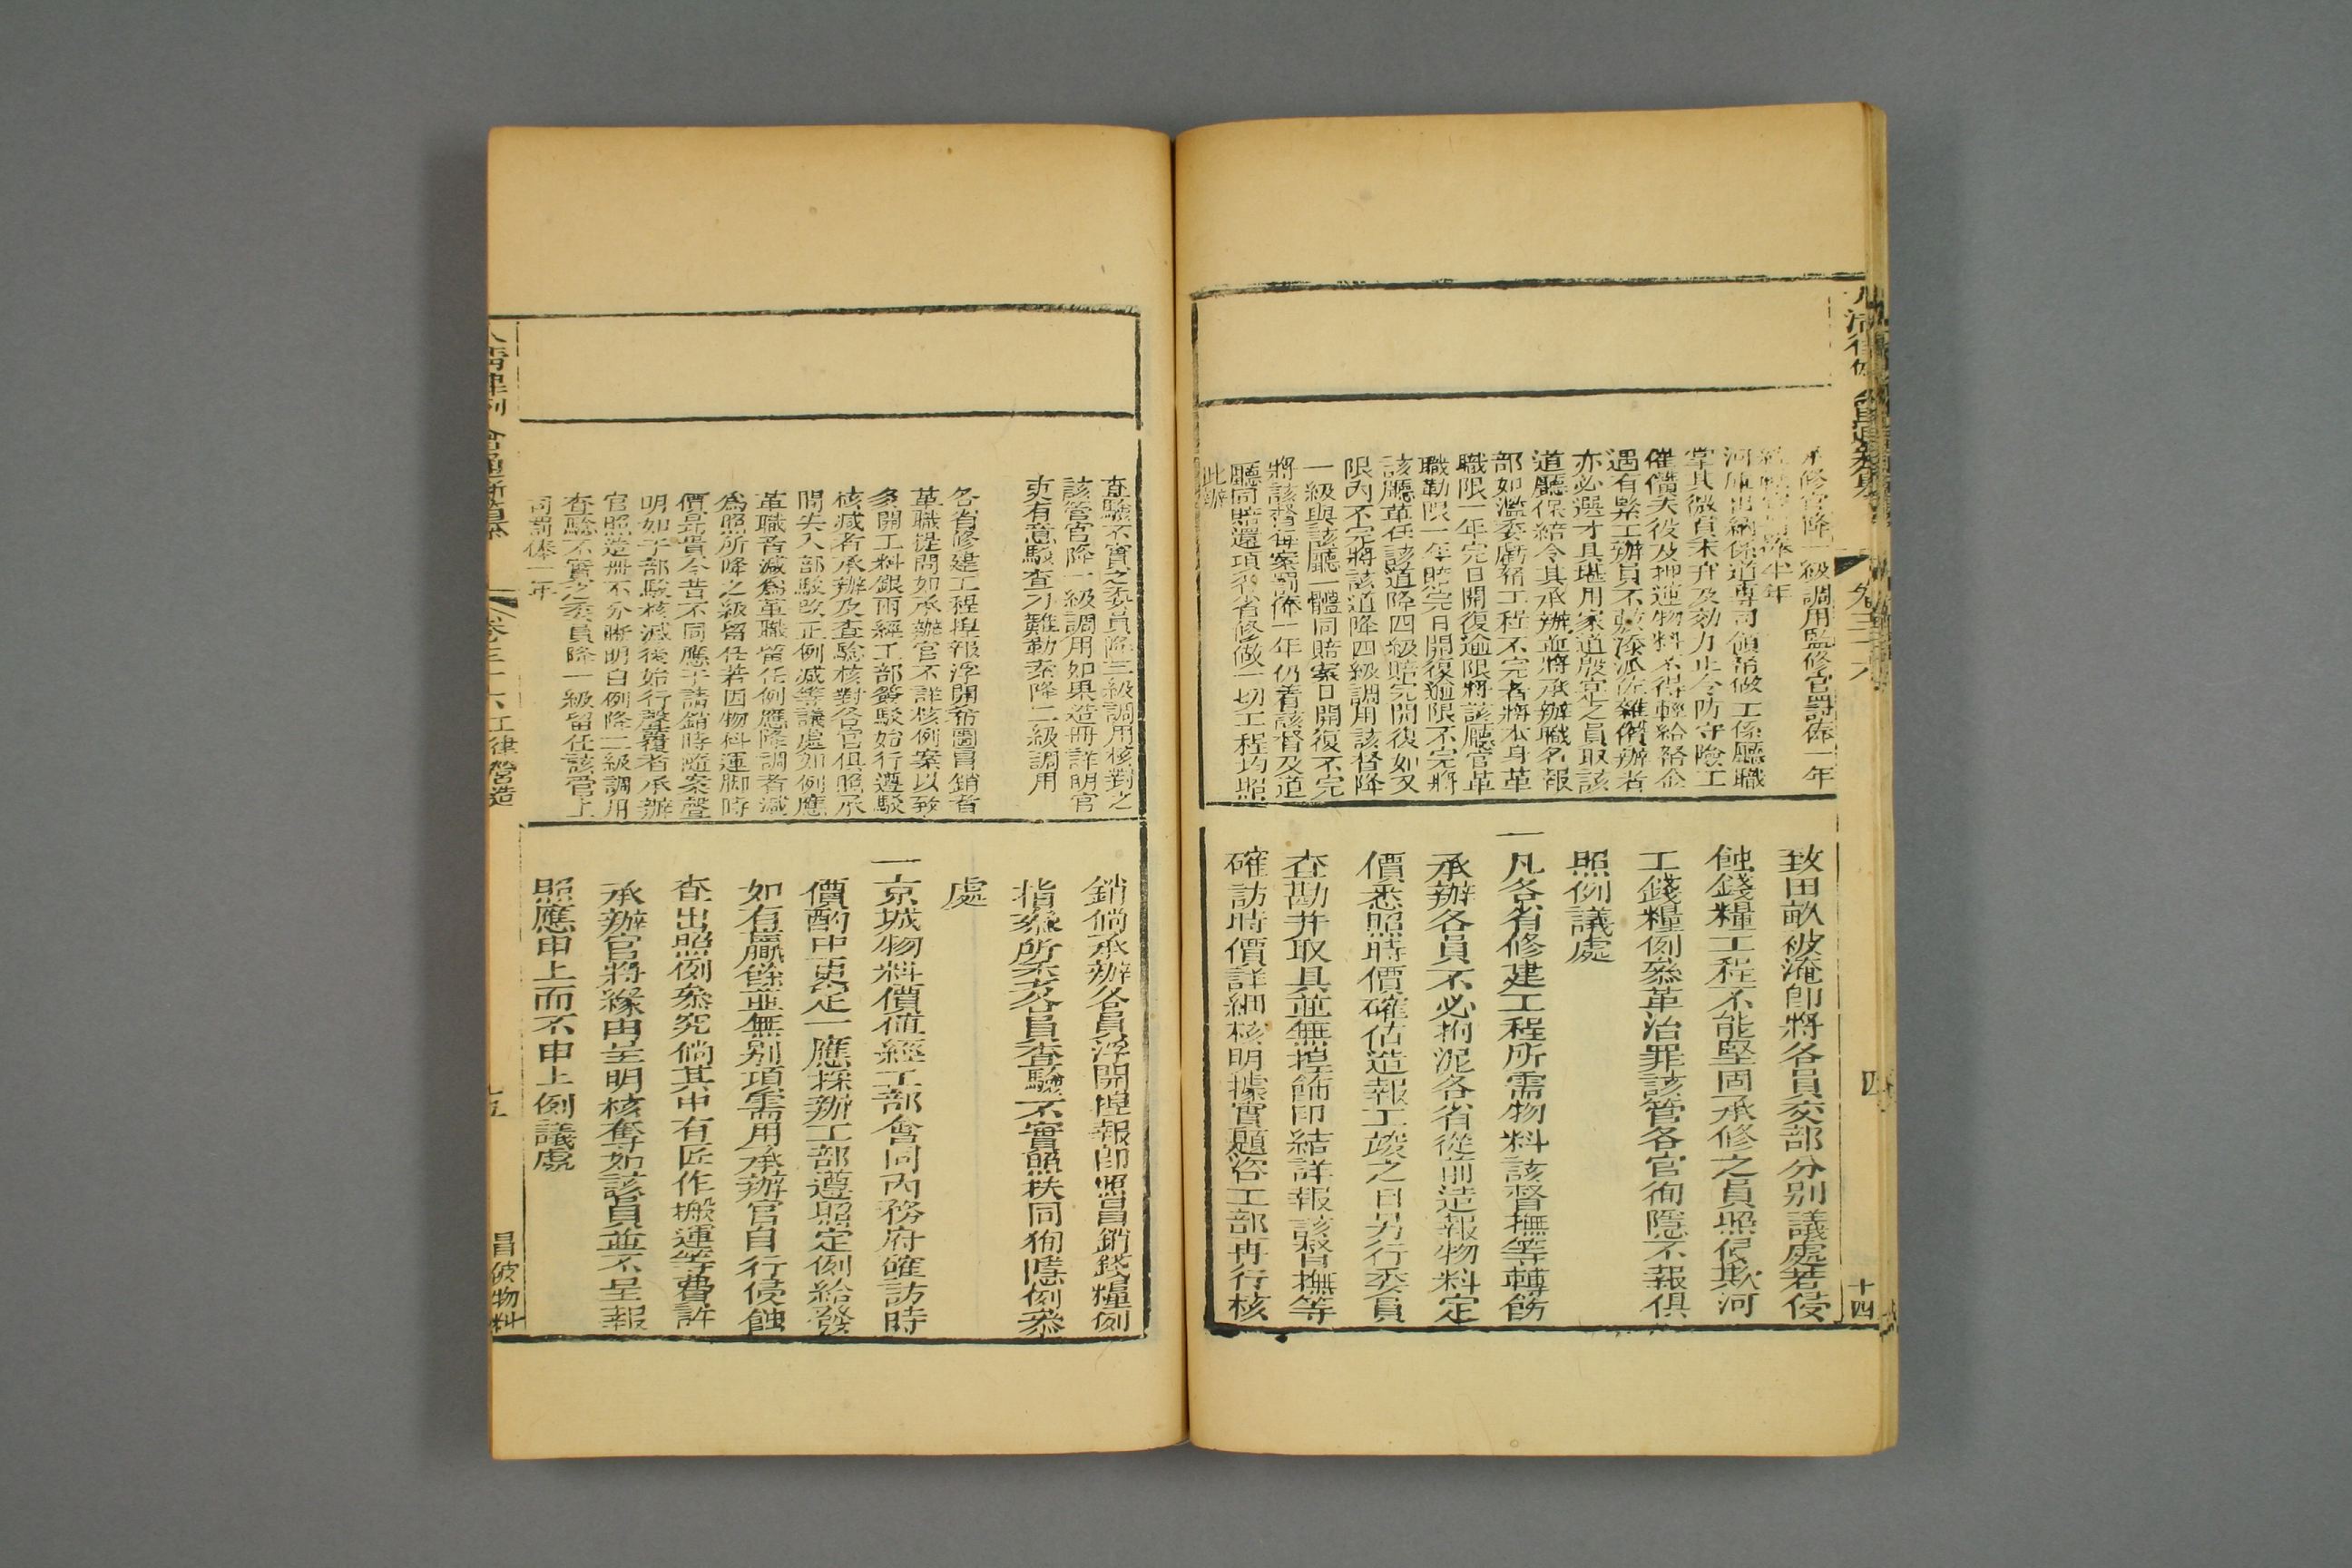 承修官降一級調用監修官罰俸一年
河庫出納係道專司領帑做工係廳職
掌其微員末弁及効力止令防守險工
催儹夫役及押運物料不得輕給帑金
遇有緊工辦員不敷添派佐雜儹辦者
亦必選才具堪用家道殷實之員取該
道廳保結令其承辦並將承辦職名報
部如濫委虧帑工程不完者將本身革
職限一年完日開復逾限將該廳官革
職勒限一年賠完日開復逾限不完將
該廳革任該道降四級賠完開復如又
限內不完將該道降四級調用該督降
一級與該廳一體同賠案日開復不完
將該督每案罰俸一年仍着該督及道
廳同賠還項各省修做一切工程均照
此辦
致田畝被淹卽將各員交部分別議處若侵
蝕錢糧工程不能堅固承修之員照侵欺河
工錢糧例叅革治罪該管各官徇隱不報俱
照例議處
一凡各省修建工程所需物料該督撫等轉飭
承辦各員不必拘泥各省從前造報物料定
價悉照時價確估造報工竣之日另行委員
查勘幷取具並無揑飾印結詳報該督撫等
確訪時價詳細核明據實題咨工部再行核
十四
查驗不實之委員降三級調用核對之
該管官降一級調用如果造冊詳明官
吏有意駁查刁難勒索降二級調用
各省修建工程揑報浮開希圖冒銷者
革職提問如承辦官不詳核例案以致
多開工料銀兩經工部簽駁始行遵駁
核減者承辦及查驗核對各官俱照承
問失入部駁改正例減等議處如例應
革職者減爲革職留任例應降調者減
爲照所降之級留任若因物料運脚時
價昂貴今昔不同應于請銷時隨案聲
明如于部駁核減後始行聲覆者承辦
官照造冊不分晰明白例降二級調用
查驗不實之委員降一級留任該管上
司罰俸一年
銷倘承辦各員浮開揑報卽照冒銷錢糧例
指叅所委各員查驗不實照扶同徇隱例叅
處
一京城物料價值經工部會同內務府確訪時
價酌中更定一應採辦工部遵照定例給發
如有贏餘並無别項需用承辦官自行侵蝕
查出照例叅究倘其中有匠作搬運等費許
承辦官將緣由呈明核奪如該員並不呈報
照應申上而不申上例議處
大清律例會通新纂 卷三十六工律營造 十五 冒破物料